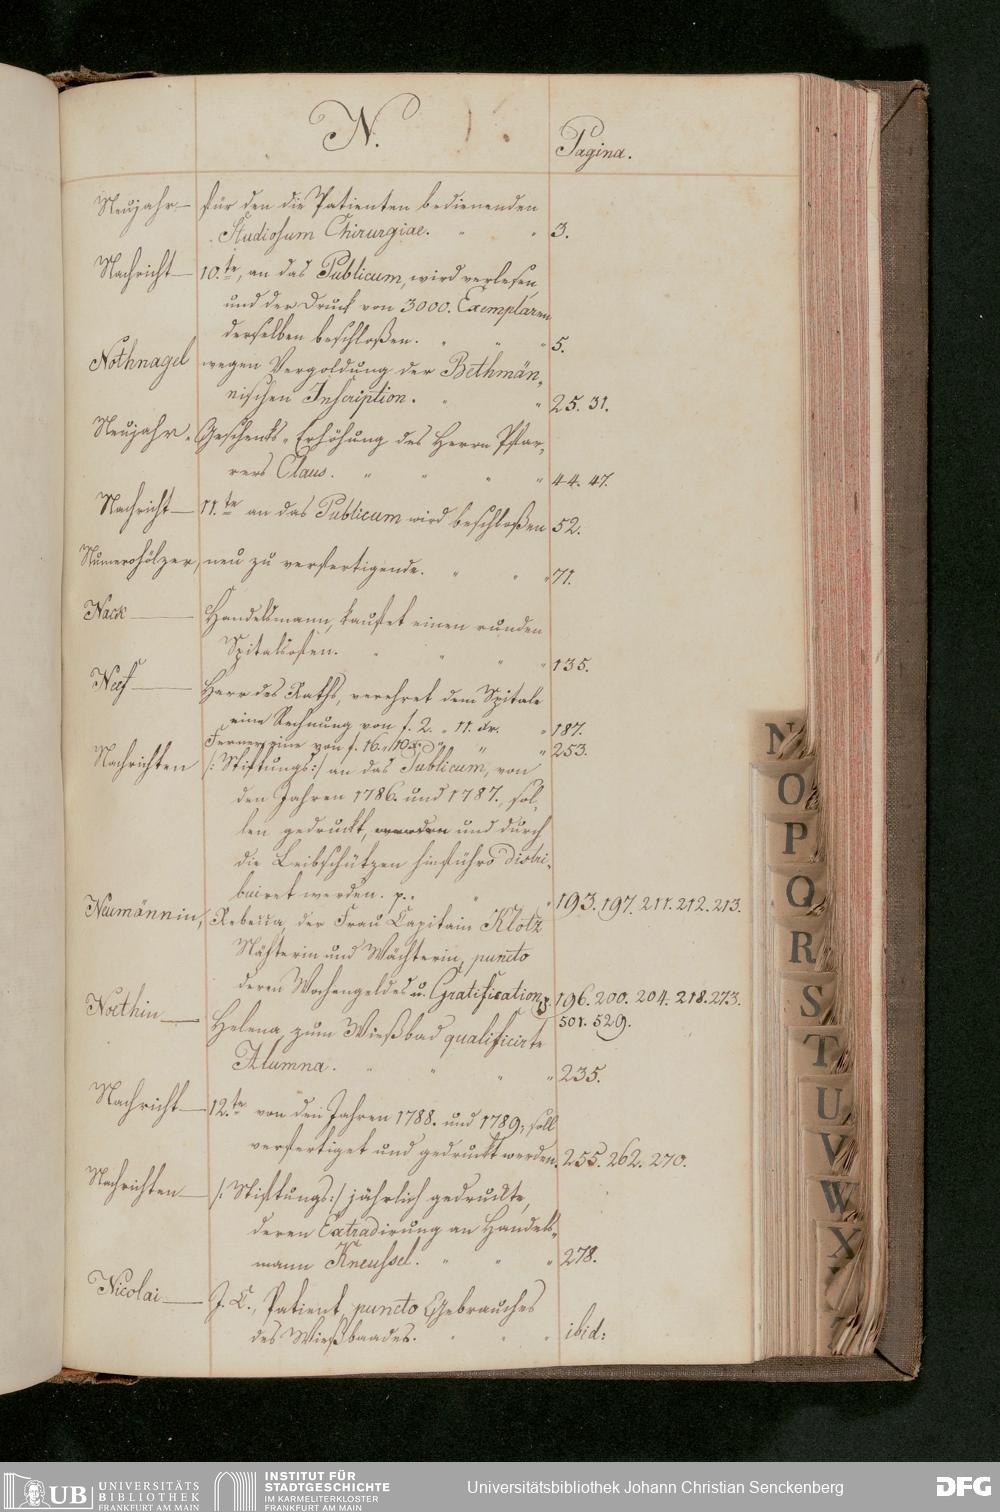 N.
Pagina.
Neujahr— für den die Patienten bedienenden
Studiosum Chirurgiae. " " 3.
Nachricht— 10.te, an das Publicum, wird verlesen,
und der Druck von 3000. Exemplaren
derselben beschloßen. " " " 5.
Nothnagel wegen Vergoldung der Bethmän-
nischen Inscription. " " 25. 31.
Neujahr- Geschenks-Erhöhung des Herrn Pfar-
rers Claus. " " " " 44. 47.
Nachricht— 11.te an das Publicum wird beschloßen 52.
Numerohölzer, neu zu verfertigende. " " " 71.
Nack— Handelsmann, kaufet einen runden
Spitalofen. " " " " 135.
Neef— Herr des Raths, verehret dem Spitale
eine Rechnung von f. 2. " 11. Xr. " 187.
Ferner eine von f. 16. " 10 Xr. " " " 253.
Nachrichten /: Stiftungs:/ an das Publicum, von
den Jahren 1786. und 1787., sol-
len gedruckt, werden und durch
die Leibschützen hinführo distri-
buiret werden. p.. " " 193. 197. 211. 212. 213.
Neumännin, Rebecca, der Frau Capitain Klotz
Nähterin und Wächterin, puncto
deren Wochengeldes u. Gratifications 196. 200. 204. 218. 273.
501. 529.
Noethin— Helena, zum Wießbad qualificirte
Alumna. " " " " 235.
Nachricht— 12.te von den Jahren 1788. und 1789, soll
verfertiget und gedruckt werden. 255. 262. 270.
Nachrichten— /: Stiftungs:/ jährlich gedruckte,
deren Extradirung an Handels-
mann Kneussel. " " " 278.
Nicolai— J. C., Patient, puncto Gebrauches
des Wießbaades. " " " ibid:
N
O
P
Q
R
S
T
U
V
W
X
UB UNIVERSITÄTS
BIBLIOTHEK
FRANKFURT AM MAIN
INSTITUT FÜR
STADTGESCHICHTE
IM KARMELITERKLOSTER
FRANKFURT AM MAIN
Universitätsbibliothek Johann Christian Senckenberg
DFG